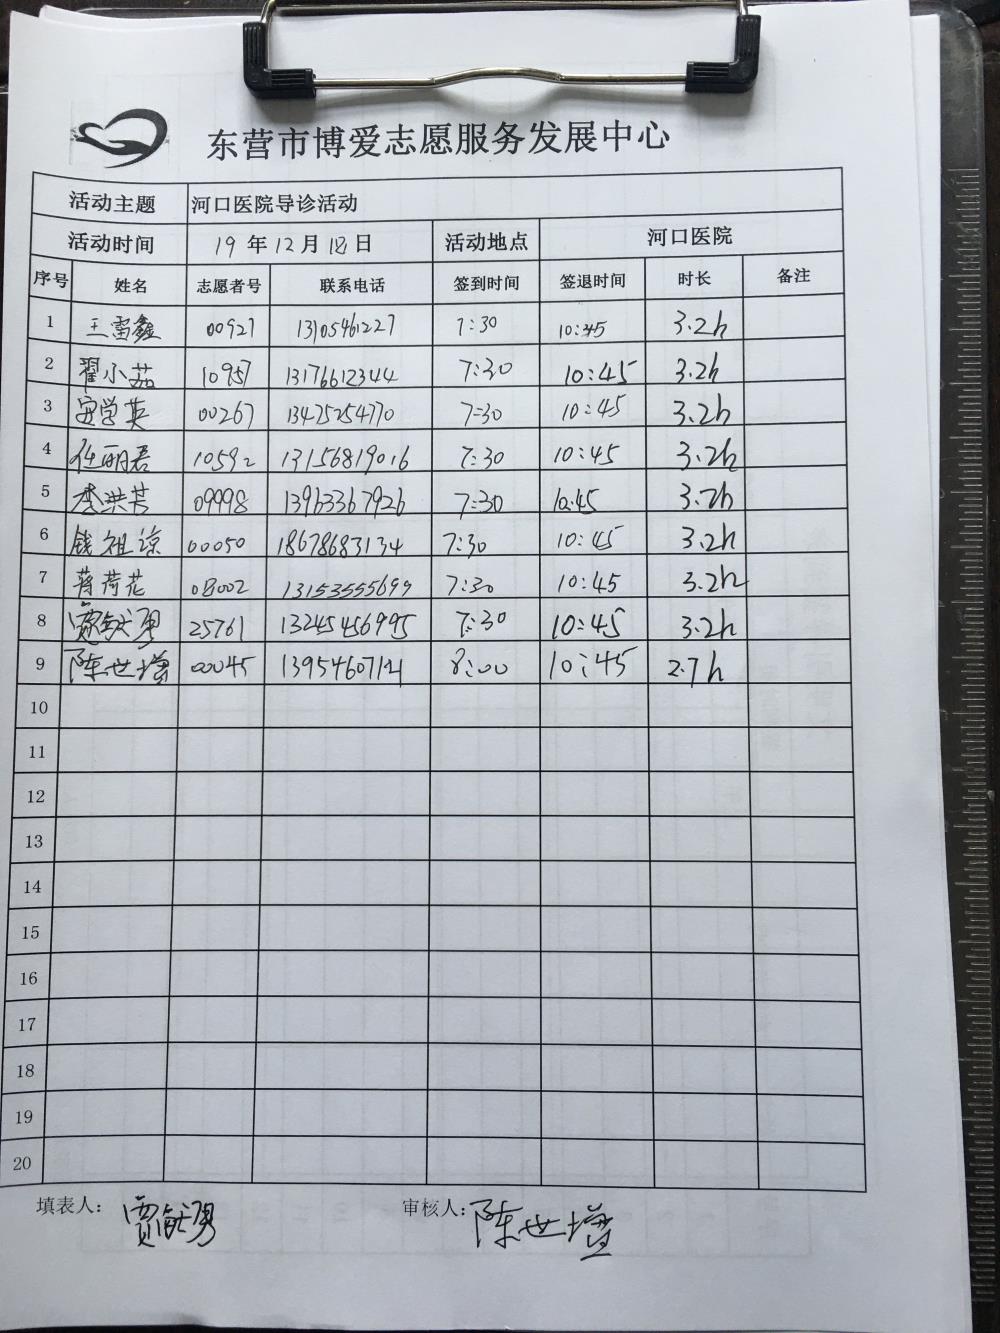 东营市博爱志愿服务发展中心
活动主题 河口医院导诊活动
活动时间 19年12月18日 活动地点 河口医院
序号 姓名 志愿者号 联系电话 签到时间 签退时间 时长 备注
1 王雷鑫 00927 13105461227 7:30 10:45 3.2h
2 翟小茹 10957 13176612344 7:30 10:45 3.2h
3 安学英 00267 13425254770 7:30 10:45 3.2h
4 任明君 10592 13156819016 7:30 10:45 3.2h
5 李洪芳 09998 13963367926 7:30 10:45 3.2h
6 钱祖谅 00050 18678683134 7:30 10:45 3.2h
7 蒋荷花 08002 13153555699 7:30 10:45 3.2h
8 贾勇 25761 13245456995 7:30 10:45 3.2h
9 陈世增 00045 13954607121 8:00 10:45 2.7h
10
11
12
13
14
15
16
17
18
19
20
填表人: 贾勇 审核人: 陈世增